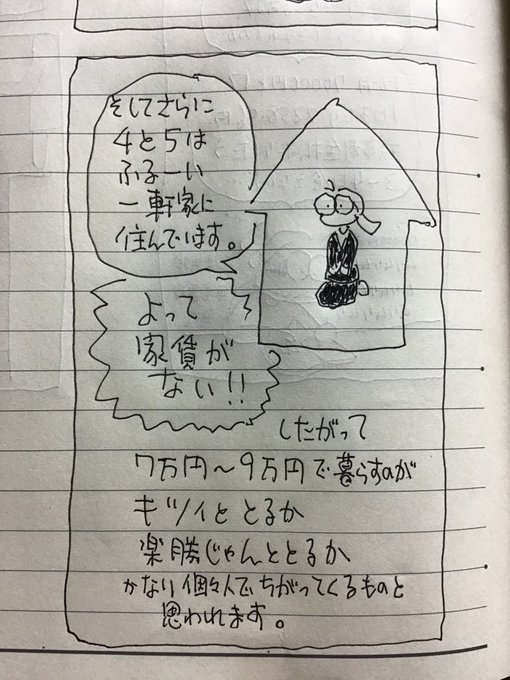 そしてさらに
4と5は
ふるーい
一軒家に
住んでいます。
よって
家賃が
ない!!
したがって
7万円～9万円で暮らすのが
キツイととるか
楽勝じゃんととるか
かなり個々人でちがってくるものと
思われます。